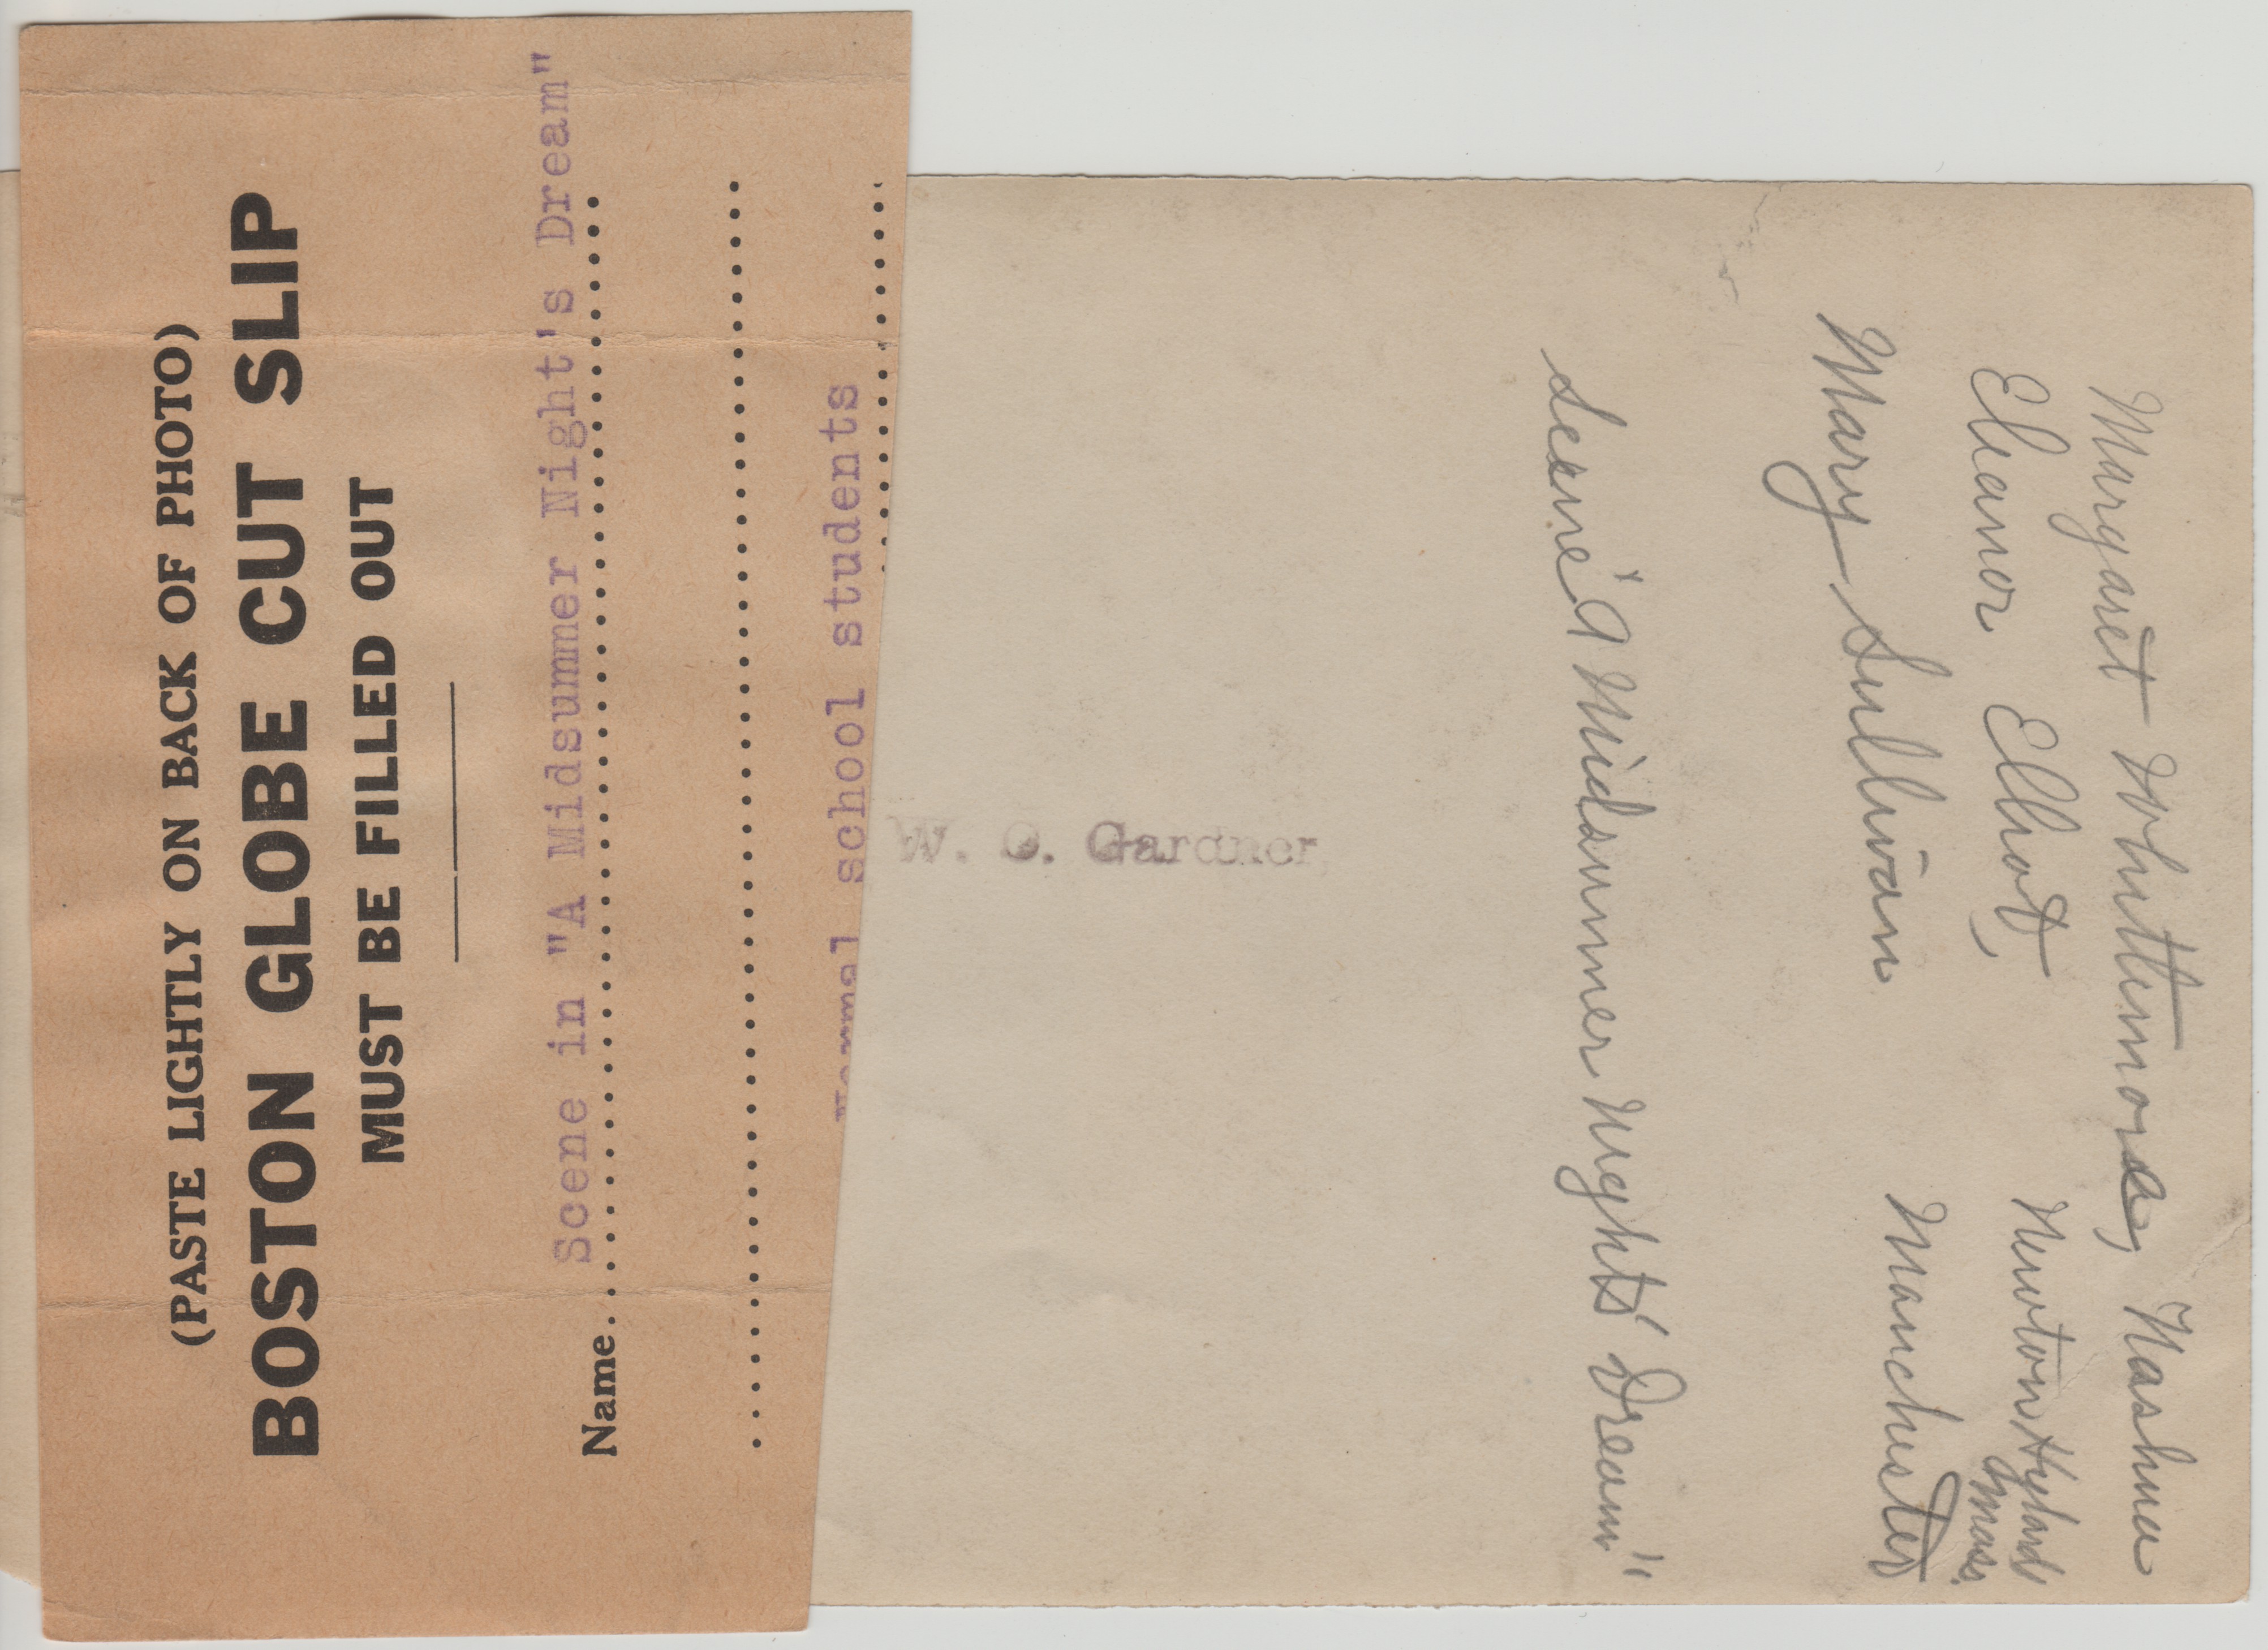 (PASTE LIGHTLY ON BACK OF PHOTO)
BOSTON GLOBE CUT SLIP
MUST BE FILLED OUT
Name. Scene in "A Midsummer Night's Dream"
Normal school students
W. O. Gardner
Margaret Whittemore, Nashua
Eleanor Elliot, Newton Hyland
Mass.
Mary Sullivan Manchester
Scene "A Midsummer Nights' Dream"